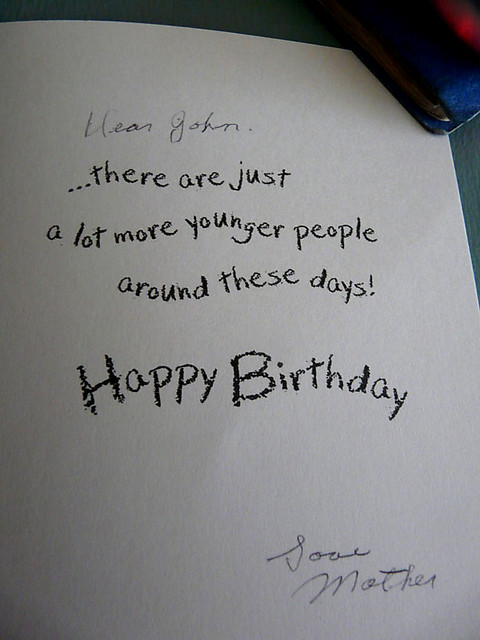 Dear John.
...there are just
a lot more younger people
around these days!
Happy Birthday
Love
Mother